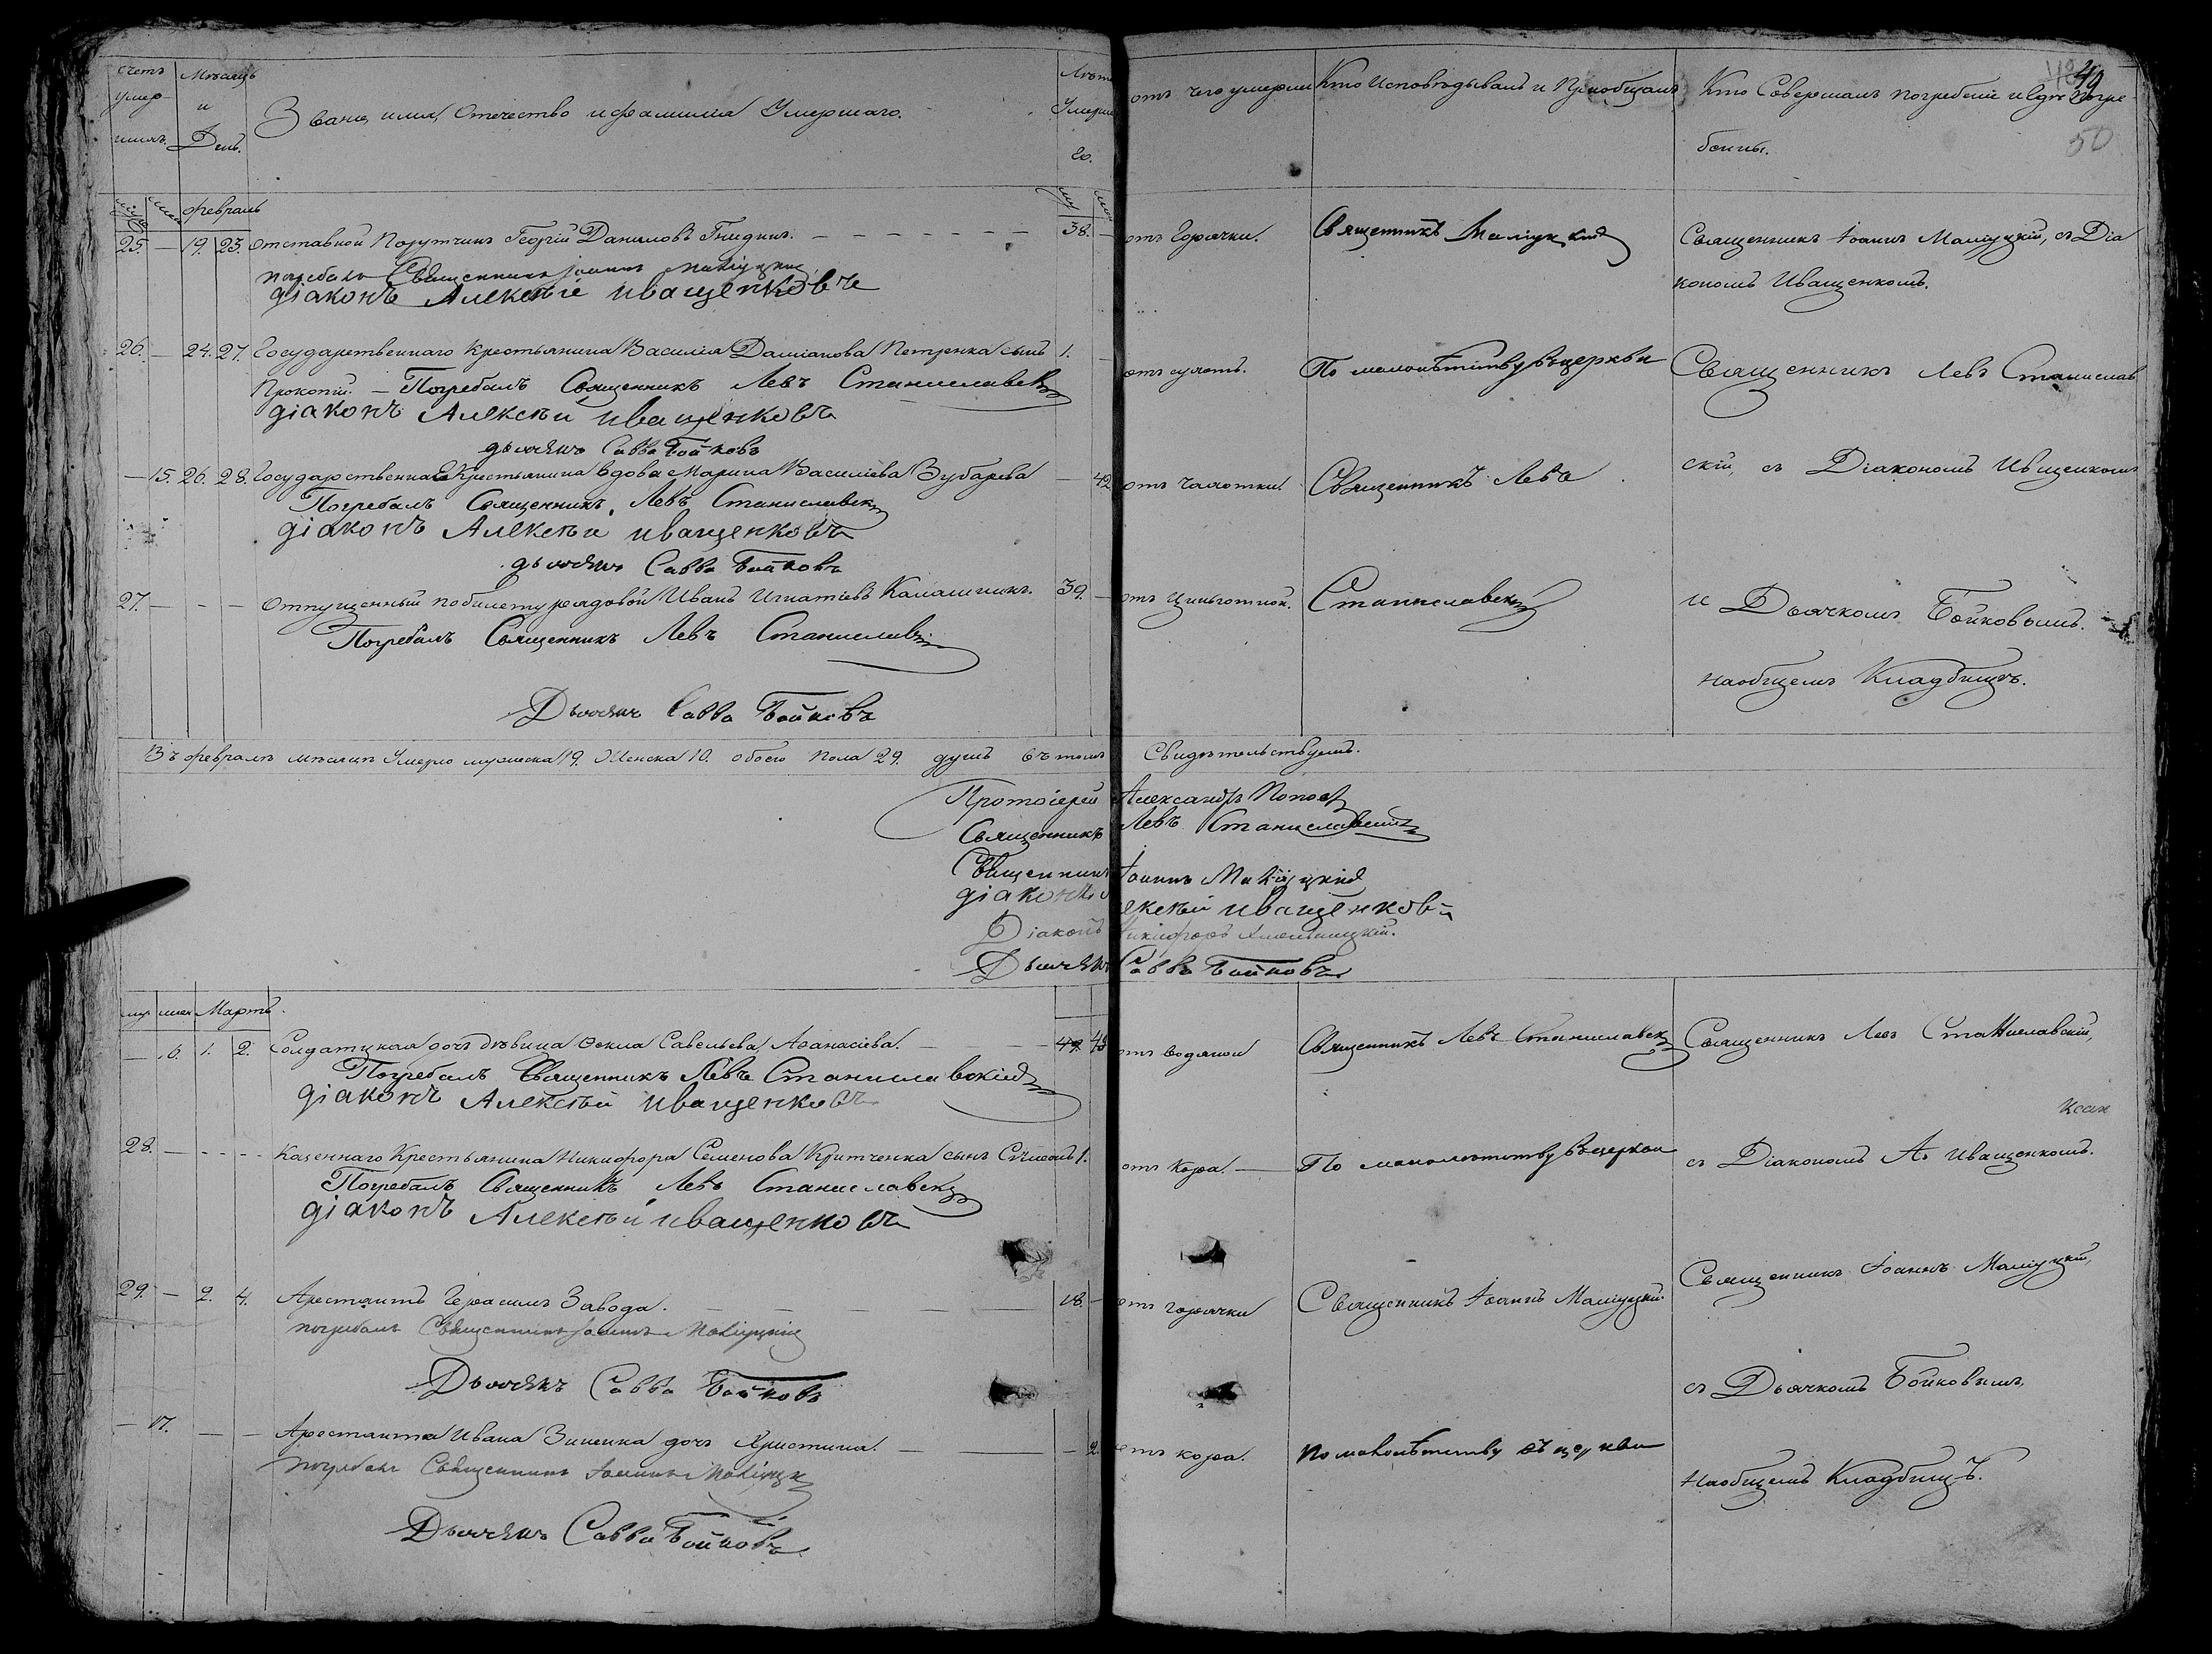 счетъ Мѣсяцъ
умер- и
шихъ. День.
Званіе, имя, Отечество и фамилія Умершаго.
Лѣта
Умерша
го.
отъ чего умерли
Кто Исповѣдывалъ и Пріобщалъ
Кто Совершалъ погребеніе и гдѣ погре-
бенны.
49
50
февраль
25. — 19. 23. Отставной Порутчикъ Георгій Даниловъ Гнидинъ. 38. — отъ Горячки. Священникъ Маліуцкій Священникъ Іоаннъ Маліуцкій, съ Діа
кономъ Иващенкомъ.
погребалъ Священникъ Іоаннъ Маліуцкій
діаконъ Алексѣй иващенковъ
26. — 24. 27. Государственнаго Крестьянина Василія Даміанова Петренка сынъ 1. — отъ сухотъ. По малолѣтству въ церкви Священникъ Левъ Станислав
Прокопій. — Погребалъ Священникъ Левъ Станиславскій
діаконъ Алексѣй иващенковъ
дьячекъ Савва Бойковъ
— 15. 26. 28. Государственнаго Крестьянина вдова Марина Василіева Зубарева — 42 отъ Чахотки. Священникъ Левъ скій, съ Діакономъ Иващенкомъ
Погребалъ Священникъ Левъ Станиславскій
діаконъ Алексѣй иващенковъ
дьячекъ Савва Бойковъ
27. — - — Отпущенный по билету рядовой Иванъ Игнатіевъ Калашникъ. 39. — отъ Цынготной. Станиславскій и Дьячкомъ Бойковымъ.
Погребалъ Священникъ Левъ Станиславскій
на общемъ Кладбищѣ.
Дьячекъ Савва Бойковъ
Въ февралѣ мѣсяцѣ Умерло мужеска 19. Женска 10. обоего пола 29. душъ въ томъ Свидѣтельствуемъ.
Протоіерей Александръ Поповъ
Священникъ Левъ Станиславскій
Священникъ Іоаннъ Маліуцкій
діаконъ Алексѣй иващенковъ
Діаконъ Никифоръ
Дьячекъ Савва Бойковъ
муж жен Мартъ.
— 16. 1. 2. Солдатская дочь дѣвица Ѳекла Савельева Аѳанасіева. — 48 отъ водяной Священникъ Левъ Станиславскій Священникъ Левъ Станиславскій,
Погребалъ Священникъ Левъ Станиславскій
діаконъ Алексѣй иващенковъ
28. — - - - - Казеннаго Крестьянина Никифора Семенова Критченка сынъ Сѵмеонъ 1. отъ Кора. — По малолѣтству въ церкви съ Діакономъ А. Иващенкомъ.
Погребалъ Священникъ Левъ Станиславскій
діаконъ Алексѣй иващенковъ
29. — 2. 4. Арестантъ Герасимъ Завода. 18. — отъ горячки Священникъ Іоаннъ Маліуцкій. Священникъ Іоаннъ Маліуцкій,
погребалъ Священникъ Іоаннъ Маліуцкій
Дьячекъ Савва Бойковъ
съ Дьячкомъ Бойковымъ,
— 17. — — Арестанта Ивана Зиненка дочь Христина. — 2. отъ кора. по малолѣтству въ церкви на общемъ Кладбищѣ.
погребалъ Священникъ Іоаннъ Маліуцкій
Дьячекъ Савва Бойковъ